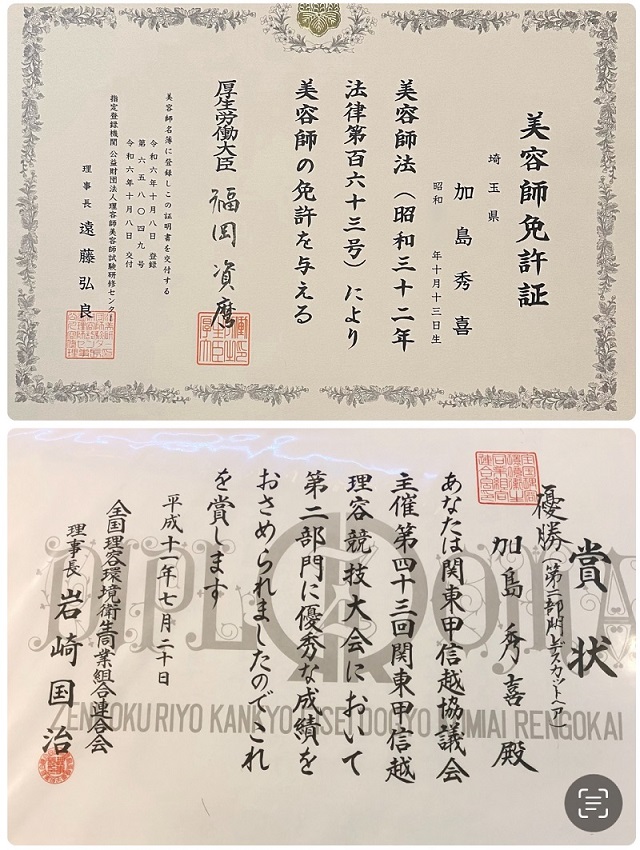 美容師免許証
埼玉県
加島秀喜
昭和 年十月十三日生
美容師法（昭和三十二年
法律第百六十三号）により
美容師の免許を与える
厚生労働大臣 福岡資麿
美容師名簿に登録しこの証明書を交付する
令和六年十月八日 登録
第六五八〇四九号
令和六年十月八日 交付
指定登録機関 公益財団法人理容師美容師試験研修センター
理事長 遠藤弘良
賞状
優勝（第二部門レデスカット（ア）
加島秀喜殿
あなたは関東甲信越協議会
主催第四十三回関東甲信越
理容競技大会において
第二部門に優秀な成績を
おさめられましたのでこれ
を賞します
平成十一年七月二十日
全国理容環境衛生同業組合連合会
理事長 岩崎国治
DIPLOMA
ZENKOKU RIYO KANKYO EISEI DOGYO KUMIAI RENGOKAI